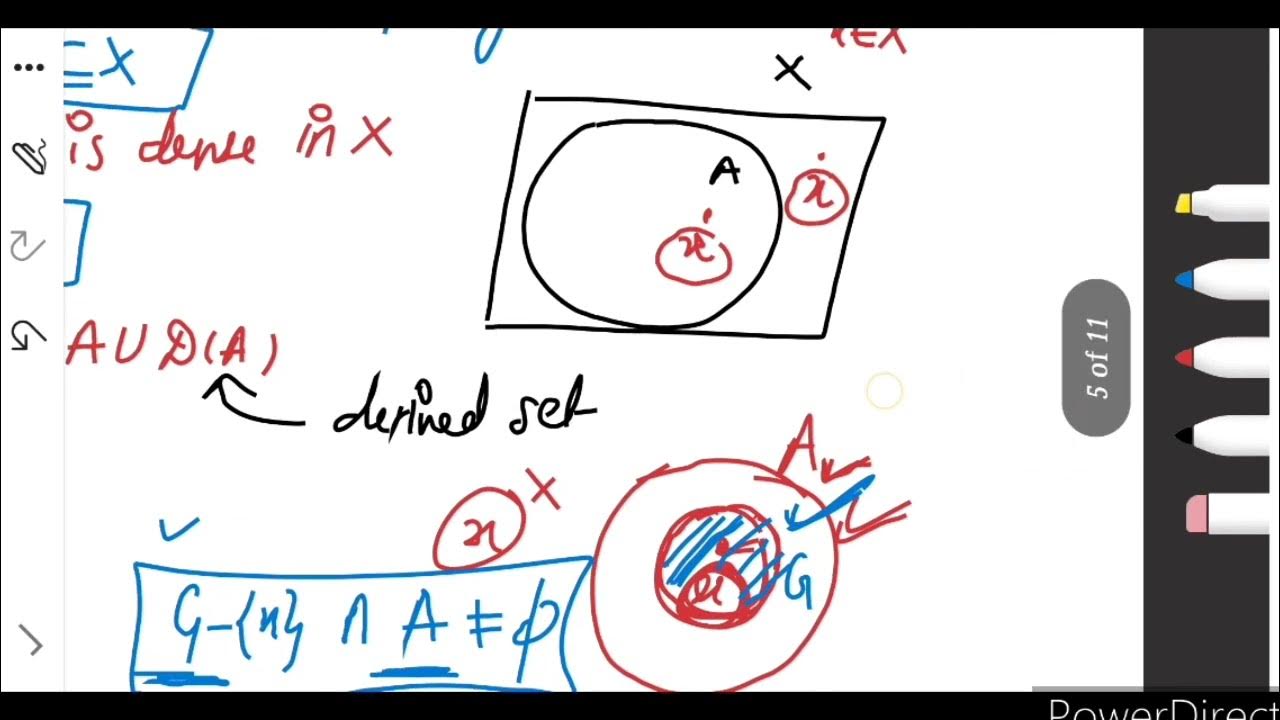 x∈X
⊆X
X
is dense in X
A
x
x
A∪D(A)
derived set
A
x X
G
x
G-{x} ∩ A ≠ φ
5 of 11
PowerDirect